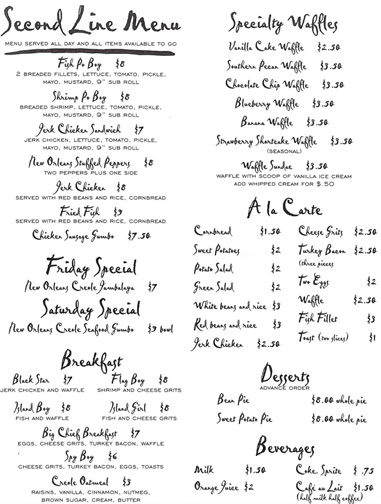 Second Line Menu
MENU SERVED ALL DAY AND ALL ITEMS AVAILABLE TO GO
Fish Po Boy $8
2 BREADED FILLETS, LETTUCE, TOMATO, PICKLE,
MAYO, MUSTARD, 9" SUB ROLL
Shrimp Po Boy $8
BREADED SHRIMP, LETTUCE, TOMATO, PICKLE,
MAYO, MUSTARD, 9" SUB ROLL
Jerk Chicken Sandwich $7
JERK CHICKEN, LETTUCE, TOMATO, PICKLE,
MAYO, MUSTARD, 9" SUB ROLL
New Orleans Stuffed Peppers $8
TWO PEPPERS PLUS ONE SIDE
Jerk Chicken $8
SERVED WITH RED BEANS AND RICE, CORNBREAD
Fried Fish $9
SERVED WITH RED BEANS AND RICE, CORNBREAD
Chicken Sausage Gumbo $7.50
Friday Special
New Orleans Creole Jambalaya $7
Saturday Special
New Orleans Creole Seafood Gumbo $9 bowl
Breakfast
Black Star $7
JERK CHICKEN AND WAFFLE
Flag Boy $8
SHRIMP AND CHEESE GRITS
Island Boy $8
FISH AND WAFFLE
Island Girl $8
FISH AND CHEESE GRITS
Big Chief Breakfast $7
EGGS, CHEESE GRITS, TURKEY BACON, WAFFLE
Spy Boy $6
CHEESE GRITS, TURKEY BACON, EGGS, TOASTS
Creole Oatmeal $3
RAISINS, VANILLA, CINNAMON, NUTMEG,
BROWN SUGAR, CREAM, BUTTER
Specialty Waffles
Vanilla Cake Waffle $2.50
Southern Pecan Waffle $3.50
Chocolate Chip Waffle $3.50
Blueberry Waffle $3.50
Banana Waffle $3.50
Strawberry Shortcake Waffle $3.50
(SEASONAL)
Waffle Sundae $3.50
WAFFLE WITH SCOOP OF VANILLA ICE CREAM
ADD WHIPPED CREAM FOR $.50
A la Carte
Cornbread $1.50
Sweet Potatoes $2
Potato Salad $2
Green Salad $2
White beans and rice $3
Red beans and rice $3
Jerk Chicken $2.50
Cheese Grits $2.50
Turkey Bacon $2.50
(three pieces
Two Eggs $2
Waffle $2.50
Fish Fillet $3
Toast (two slices) $1
Desserts
ADVANCE ORDER
Bean Pie $8.00 whole pie
Sweet Potato Pie $8.00 whole pie
Beverages
Milk $1.50
Orange Juice $2
Coke, Sprite $.75
Café au Lait $1.50
(half milk half coffee)